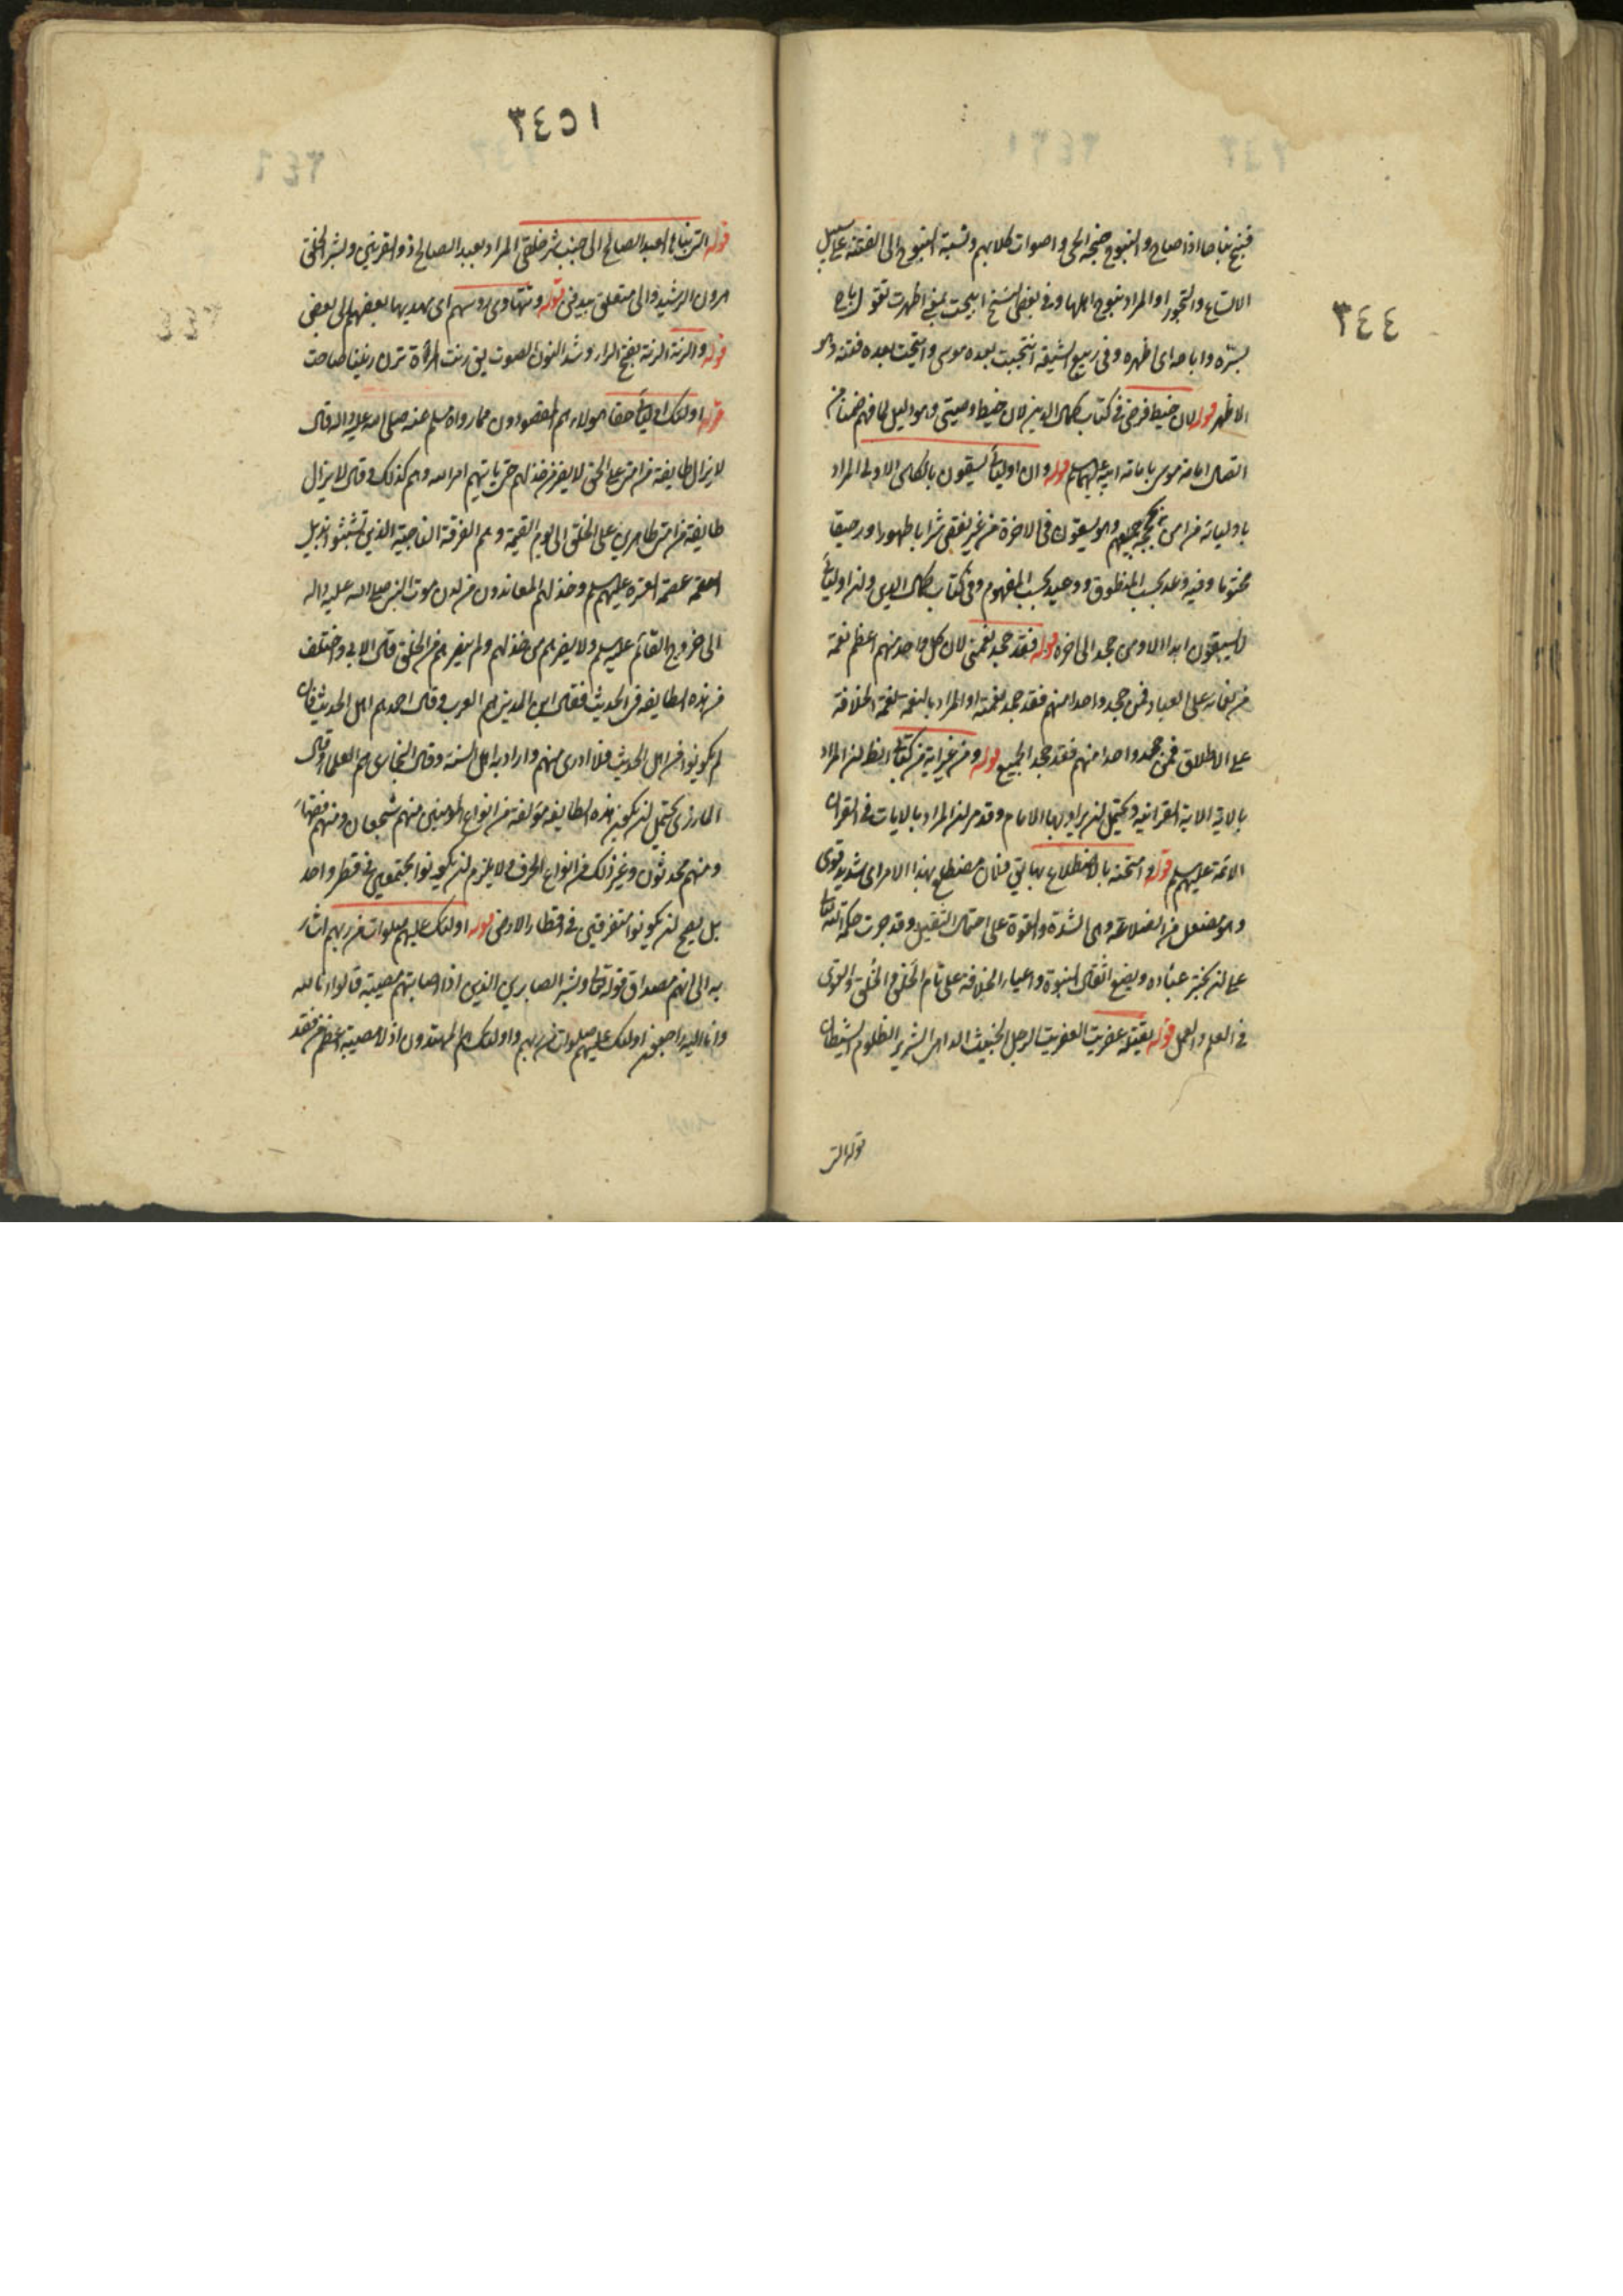 ٣٤٤
فنبح نباحا اذا صاح والنبوح ضجة الحي واصوات كلابهم ونسبة النبوح الى الفتنة على سبيل
الاتساع والتجوز او المراد نبوح اهلها وفي بعض النسخ ابيحت بمعنى اظهرت تقول باح
بسره واباحه اى اظهره وفي ربيع الشيعة انتجبت بعده موسى وانتجبت بعده فتنة وهو
الاظهر قوله لان خيط فرضي في كتاب كمال الدين لان خيط وصيتي وهو دليل لما فهم ضمنا من
اتصال امامة موسى بامامة ابيه عليهما السلم قوله وان اوليائى يسقون بالكاس الاوفى المراد
باوليائه من امن بحججه جميعهم وهم يسقون في الاخرة من غير نقص شرابا طهورا ورحيقا
مختوما وفيه وعد بحسب المنطوق ووعيد بحسب المفهوم وفي كتاب كمال الدين ولن اوليائى
لا يسبقون ابدا الا ومن جحد الى اخره قوله فقد جحد نعمتي لان كل واحد منهم اعظم نعمة
من نعمائه على العباد فمن جحد واحدا منهم فقد جحد نعمته او المراد بالنعمة نعمة الخلافة
على الاطلاق فمن جحد واحدا منهم فقد جحد الجميع قوله ومن غير اية من كتابي الظ لن المراد
بالاية الاية القرانية ويحتمل لن يراد بها الامام وقد مر لن المراد بالايات في القران
الائمة عليهم السلم قوله وامتحنه بالاضطلاع بها يق فلان مضطلع بهذا الامر اى شديد قوى
وهو مفتعل من الضلاعة وهى الشدة والقوة على احتمال الثقيل وقد جرت حكمة الله تعالى
على لن يختبر عباده ويضع اثقال النبوة واعباء الخلافة على تام الخلق والخلق والقوى
في العلم والعمل قوله يقتله عفريت العفريت الرجل الخبيث الداهى الشرير الظلوم الشيطان
قوله التى
٣٤٥١
قوله التى بناها العبد الصالح الى جنب شر خلقي المراد بعبد الصالح ذو القرنين وبشر الخلق
هرون الرشيد والى متعلق بيدفن قوله وتتهادى روسهم اى يهديها بعضهم الى بعض
قوله والرنة الرنة بفتح الراء وشد النون الصوت يق رنت المراة ترن رنينا صاحت
قوله اولئك اوليائى حقا هولاء هم المقصودون مما رواه مسلم عنه صلى الله عليه واله قال
لا يزال طايفة من امتى على الحق لا يضر من خذلهم حتى ياتيهم امر الله وهم كذلك وقال لا يزال
طايفة من امتى ظاهرين على الخلق الى يوم القيمة وهم الفرقة الناجية الذين تشبثوا بذيل
عصمة العترة عليهم السلم وخذلهم المعاندون من لدن موت النبى صلى الله عليه واله
الى خروج القائم عليه السلم ولا يضرهم من خذلهم ولم ينصرهم من الخلق قال الابى واختلف
في هذه الطايفة في الحديث فقال ابن المدينى هم العرب وقال احمد هم اهل الحديث فان
لم يكونوا من اهل الحديث فلا ادرى من هم واراد به اهل السنة وقال البخارى هم العلماء وقال
المازرى يحتمل لن يكون هذه الطايفة مؤلفة من انواع المومنين منهم شجعان ومنهم فقهاء
ومنهم محدثون وغير ذلك من انواع الحرف ولا يلزم لن يكونوا مجتمعين في قطر واحد
بل يصح لن يكونوا متفرقين في اقطار الارض قوله اولئك عليهم صلوات من ربهم اشار
به الى انهم مصداق قوله تعالى وبشر الصابرين الذين اذا اصابتهم مصيبة قالوا انا لله
وانا اليه راجعون اولئك عليهم صلوات من ربهم واولئك هم المهتدون اذ لا مصيبة اعظم من فقد